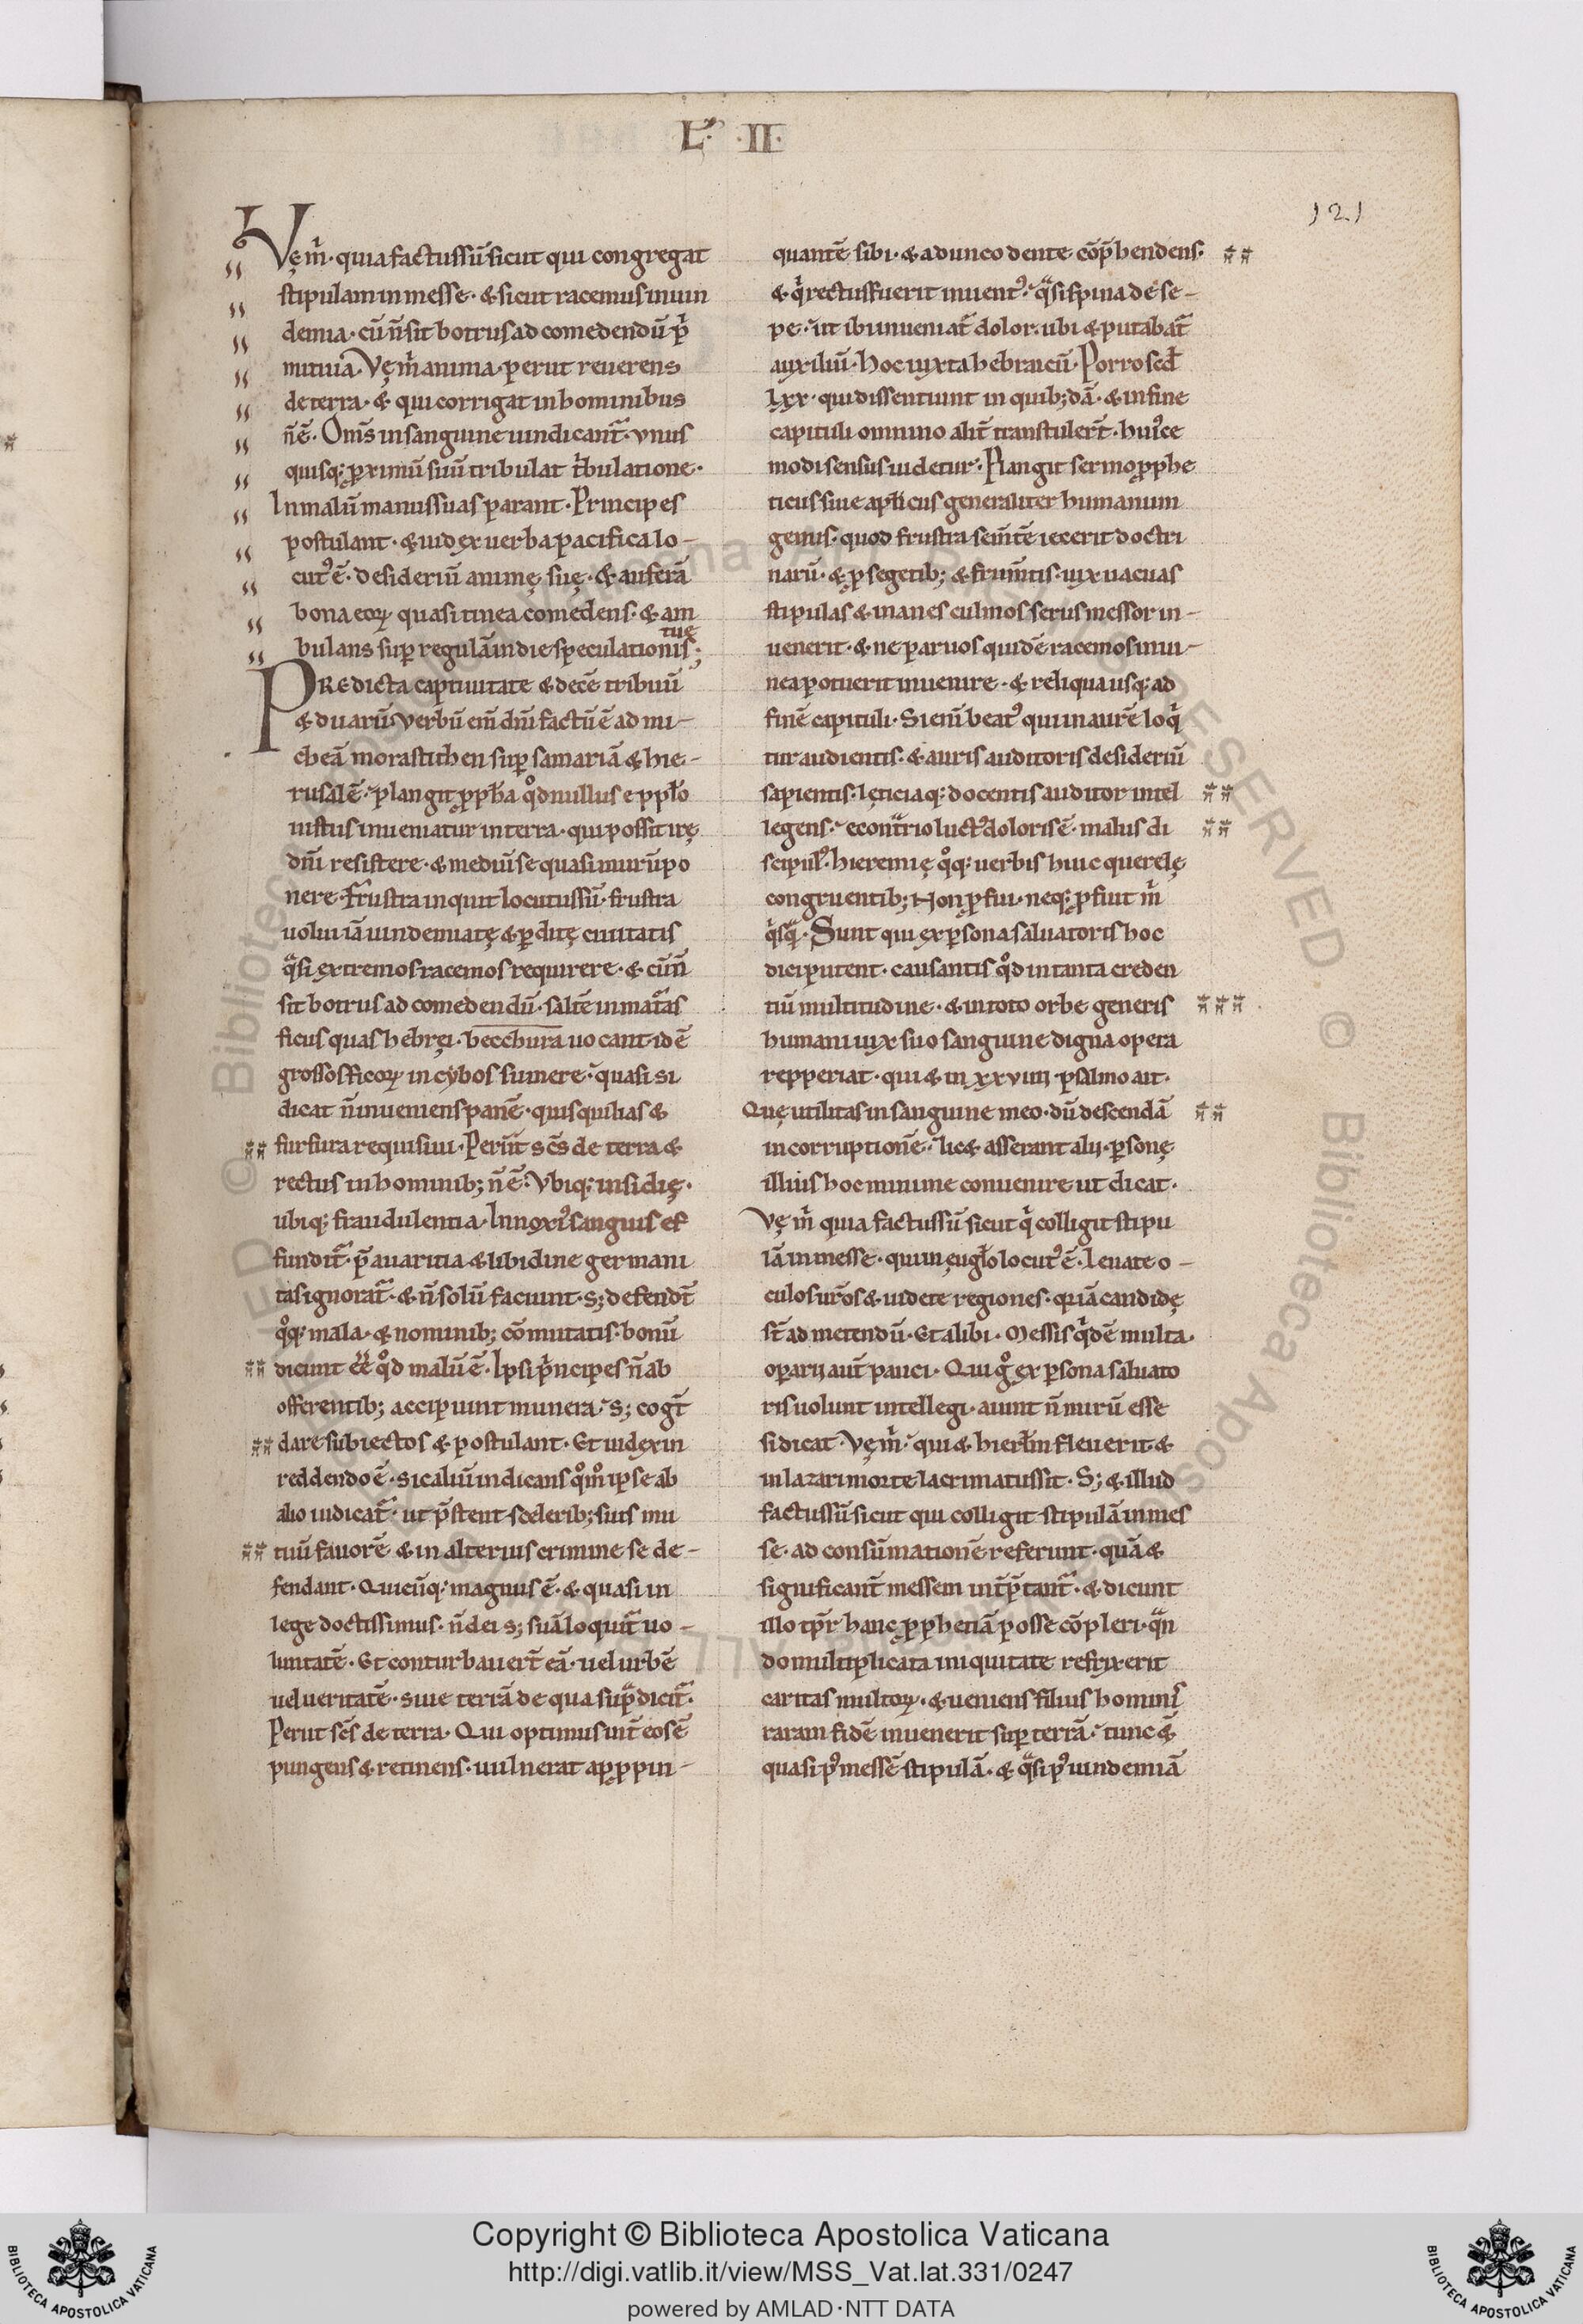 L· ·II·
121
Vę m̅· quia factus sū sicut qui congregat
stipulam in messe· & sicut racemus in uin
demia· cū n̅ sit botrus ad comedendū p̅
mitiuā· Vę m̅ anima· periit reuerens
de terra· & qui corrigat in hominibus
n̅ ē· Om̅s in sanguine iudicant᷑· vnus
quisq; ꝓximū suū tribulat t̅bulatione·
In malū manus suas parant· Principes
postulant· & iudex uerba pacifica lo-
cut᷒ ē· desideriū animę suę· & auferā
bona eoꝝ quasi tinea comedens· & am
bulans suꝑ regulā in die speculationis tuę;
PRedicta captiuitate & decē tribuū
& duarū verbū em̅ dn̅i factū ē ad mi-
cheā morasthiten suꝑ samariā & hie-
rusalē· plangit ꝓph̅a qd̊ nullus e pplo̅
iustus inueniatur in terra· qui possit irę
dn̅i resistere· & mediū se quasi murū po
nere· Frustra inquit locutus sū· frustra
uolui iā uindemiatę & ꝑditę ciuitatis
qͣsi extremos racemos requirere· & cū n̅
sit botrus ad comedendū· saltē inmat᷑as
ficus quas hebręi· becchura uocant· id ē
grossos ficoꝝ in cybos sumere· quasi si
dicat n̅ inueniens panē· quisquilias &
furfura requisiui· Periit sc̅s de terra &
rectus in hominib; n̅ ē· Vbiq; insidię·
ubiq; fraudulentia· Innoxi᷒ sanguis ef
fundit᷑· p̅ auaritia & libidine germani
tas ignorat᷑· & n̅ solū faciunt· s; defendt̅
qͦq; mala· & nominib; cōmutatis· bonū
dicunt ee̅ qd̊ malū ē· Ipsi pͥncipes n̅ ab
offerentib; accipiunt munera· s; cogt̅
dare subiectos & postulant· Et iudex in
reddendo ē· sic aliū iudicans qͦmͦ ipse ab
alio iudicat᷑· ut p̅stent scelerib; suis mu
tuū fauorē & in alterius crimine se de-
fendant· Quicūq; magnus ē· & quasi in
lege doctissimus· n̅ dei s; suā loquit᷑ uo-
luntatē· Et conturbauert̅ eā· uel urbē
uel ueritatē· siue terrā de qua supͣ dicit᷑·
Periit sc̅s de terra· Qui optimus int̅ eos ē
pungens & retinens· uulnerat apꝓpin-
quantē sibi· & adunco dente cōp̅hendens·
& qͥ rectus fuerit inuent᷒· qͣsi spina de se-
pe· ut ibi inueniat᷑ dolor· ubi & putabat᷑
auxiliū· Hoc iuxta hebraicū· Porro sed̅
lxx· qui dissentiunt in quib;dā· & in fine
capituli omnino alit̅ transtulert̅· hui᷒ce
modi sensus uidetur· Plangit sermo ꝓphe
ticus siue aplicus generaliter humanum
genus· quod frustra sem̅tē iecerit doctri
narū· & ꝓ segetib; & frum̅tis· uix uacuas
stipulas & inanes culmos serus messor in-
uenerit· & ne paruos quidē racemos in ui-
nea potuerit inuenire· & reliqua usq; ad
finē capituli· Si eni̅ beat᷒ qui in aurē loqͥ
tur audientis· & auris auditoris desideriū
sapientis· lęticiaq; docentis auditor intel
legens· econt᷑rio luct᷒ doloris ē· malus di
scipul᷒· hieremię qͦq; uerbis huic querelę
congruentib; Non ꝓfui· neq; ꝓfuit m̅
qͥsqͣ· Sunt qui ex ꝑsona saluatoris hoc
dici putent· causantis qd̊ in tanta creden
tiū multitudine· & in toto orbe generis
humani uix suo sanguine digna opera
repperiat· qui & in xxviiii psalmo ait·
Quę utilitas in sanguine meo· dū descendā
in corruptionē· lic& asserant alii· ꝑsonę
illius hoc minime conuenire ut dicat·
Vę m̅ quia factus sū sicut qͥ colligit stipu
lā in messe· qui in ęuglo̅ locut᷒ ē· Leuate o-
culos uros & uidete regiones· q̅a iā candidę
st̅ ad metendū· Et alibi· Messis qͥdē multa·
operarii aut̅ pauci· Qui gͦ ex ꝑsona saluato
ris uolunt intellegi· aiunt n̅ mirū esse
si dicat· Vę m̅· qui & hierl̅m fleuerit &
in lazari morte lacrimatus sit· S; & illud
factus sū sicut qui colligit stipulā in mes
se· ad consūmationē referunt· quā &
significant̅ messem int̅p̅tant᷑· & dicunt
illo tp̅r hanc ꝓphetiā posse cōpleri· qͣn
do multiplicata iniquitate refrixerit
caritas multoꝝ· & ueniens filius hominis
raram fidē inuenerit suꝑ terrā· tunc &̅
quasi p᷒ messē stipulā· & qͣsi p᷒ uindemiā
Copyright © Biblioteca Apostolica Vaticana
http://digi.vatlib.it/view/MSS_Vat.lat.331/0247
powered by AMLAD·NTT DATA
BIBLIOTECA APOSTOLICA VATICANA
BIBLIOTECA APOSTOLICA VATICANA